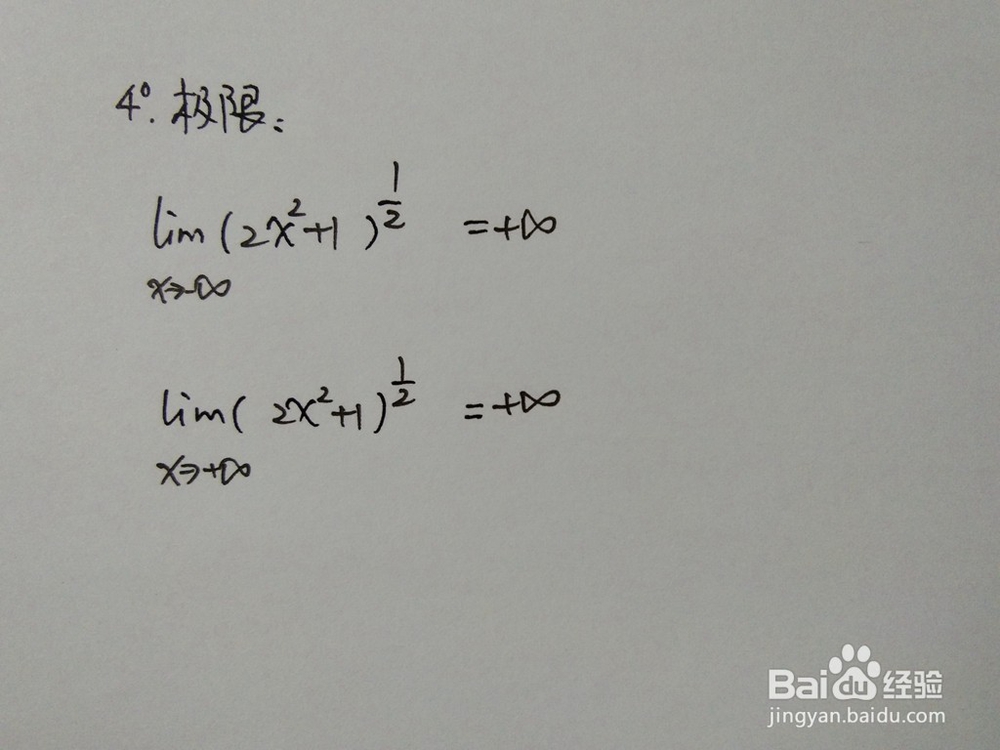 4°. 极限:
lim(2x²+1)^{1/2} =+∞
x→-∞
lim(2x²+1)^{1/2} =+∞
x→+∞
Baidu经验
jingyan.baidu.com